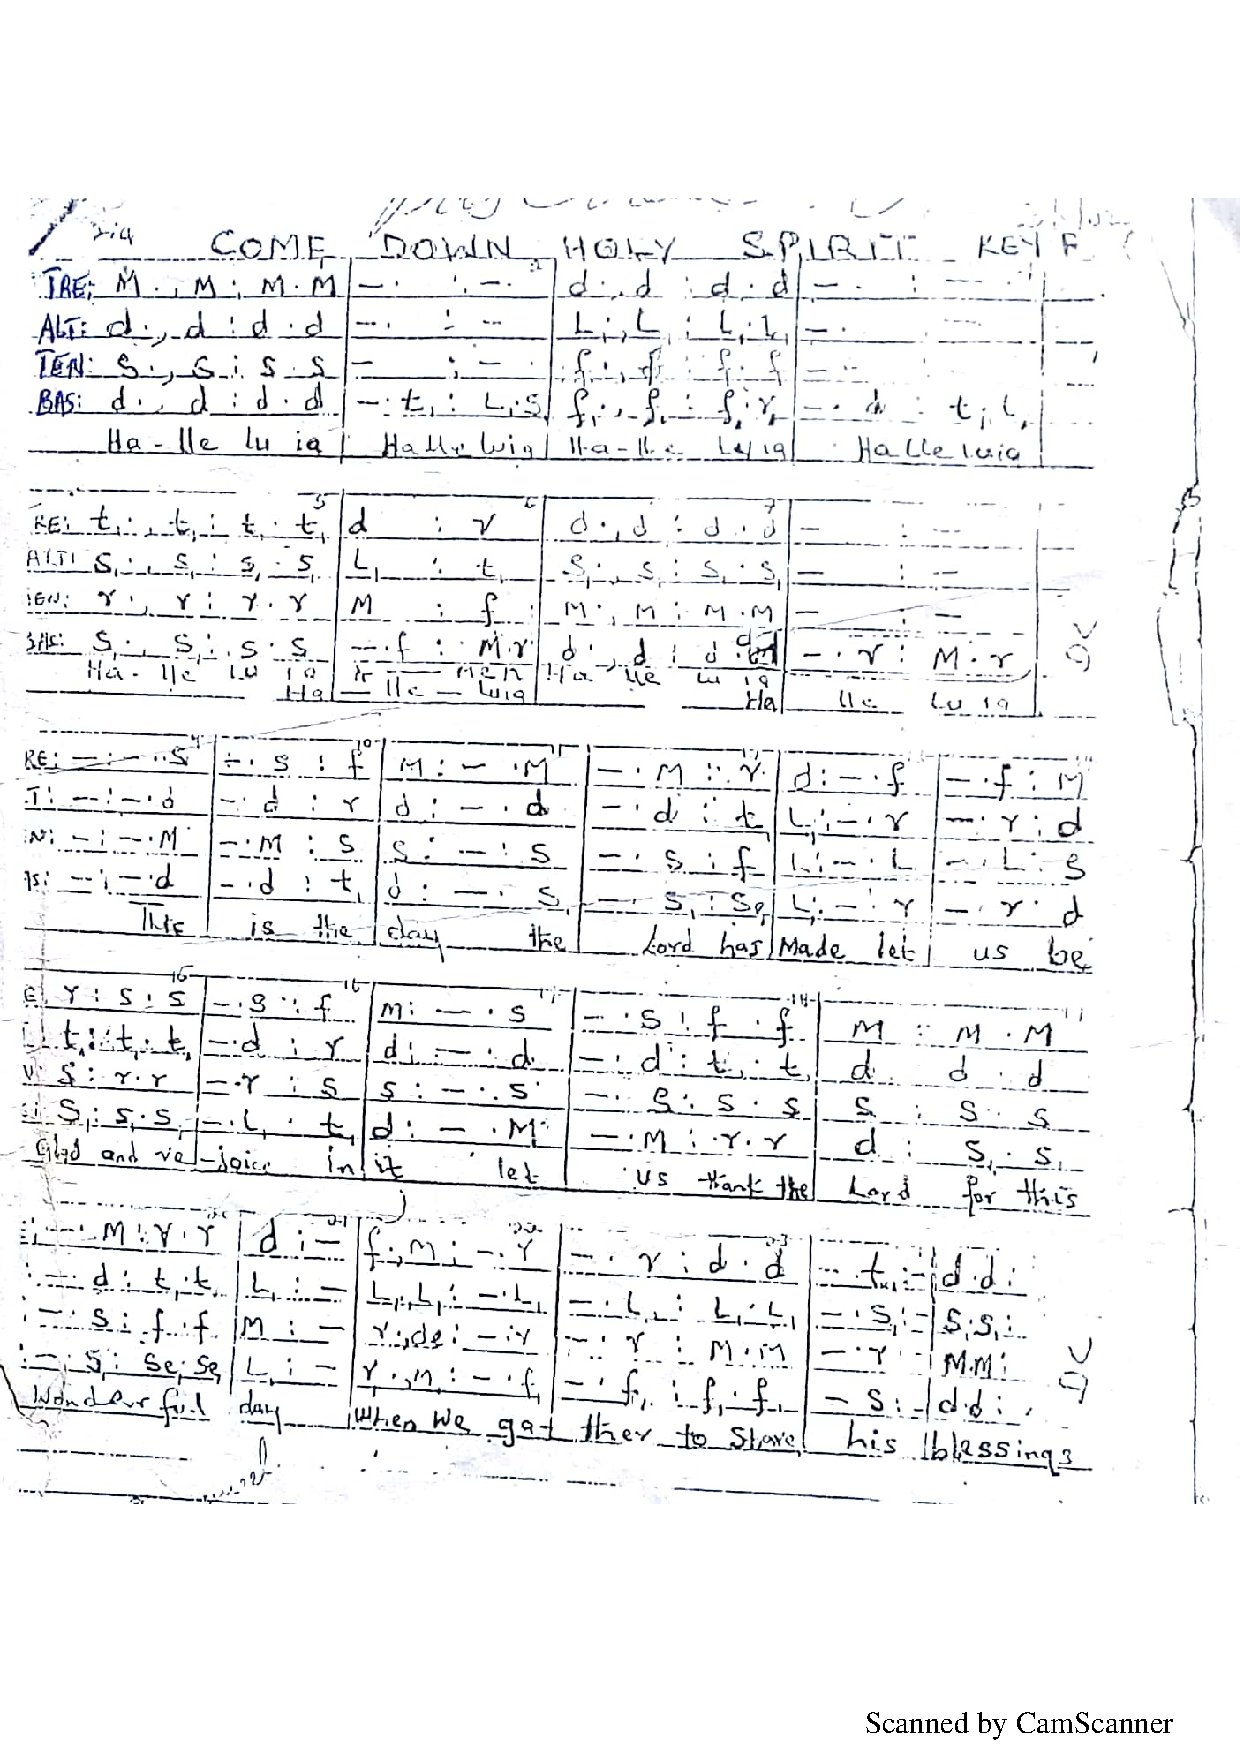 2:4
COME DOWN HOLY SPIRIT KEY F
TRE: M ., M : M . M | - . : - . | d ., d : d . d | - . : -
ALT: d ., d : d . d | - . : - | L ., L : L . L | - .
TEN: S ., S : S . S | - : - | f ., f : f . f | -
BAS: d ., d : d . d | - . t, : L, S, | f, ., f, : f, . r, | - . d : t, L,
Ha - lle lu ia | Halleluia | Ha - lle lu ia | Halleluia
RE: t, ., t, : t, . t, | d : r | d ., d : d . d | - : -
ALT: S, ., S, : S, . S, | L, : t, | S, ., S, : S, . S, | - : -
TEN: r ., r : r . r | M : f | M ., M : M . M | - : -
BAS: S, ., S, : S . S | - . f : M . r | d ., d : d . | - . r : M . r
Ha - lle lu ia | MEN | Ha lle lu ia
Ha | - lle - luia | Ha | lle lu ia
RE: - : - . S | - . S : f | M : - . M | - . M : r | d : - . f | - . f : M
T: - : - . d | - . d : r | d : - . d | - . d : t, | L, : - . r | - . r : d
N: - : - . M | - . M : S | S : - : S | - . S : f | L : - . L | - . L : S
AS: - : - . d | - . d : t, | d : - . S, | - . S, : Se, | L, : - . r | - . r : d
This | is the | day the | Lord has | Made let | us be
r : S : S | - . S : f | M : - . S | - . S : f . f | M : M . M
t, : t, . t, | - . d : r | d : - . d | - . d : t, . t, | d d . d
S : r . r | - . r : S | S : - . S | - . S : S . S | S : S . S
S, : S, . S, | - . L, . t, | d : - . M | - . M : r . r | d : S, . S,
Glad and re | - joice in | it let | us thank the | Lord for this
- . M : r . r | d : - | f ., M : - . r | - . r : d . d | - t, : - | d d :
- . d : t, . t, | L, : - | L, . L, : - . L, | - . L, : L, . L, | - S, : - | S, S, :
- . S : f . f | M : - | r ., de : - . r | - . r : M . M | - . r - | M . M :
- . S, : Se, . Se, | L, : - | r ., M : - . f, | - . f, : f, . f, | - S : - | d d :
Wonder ful | day | When we get | ther to Share | his | blessings
Scanned by CamScanner